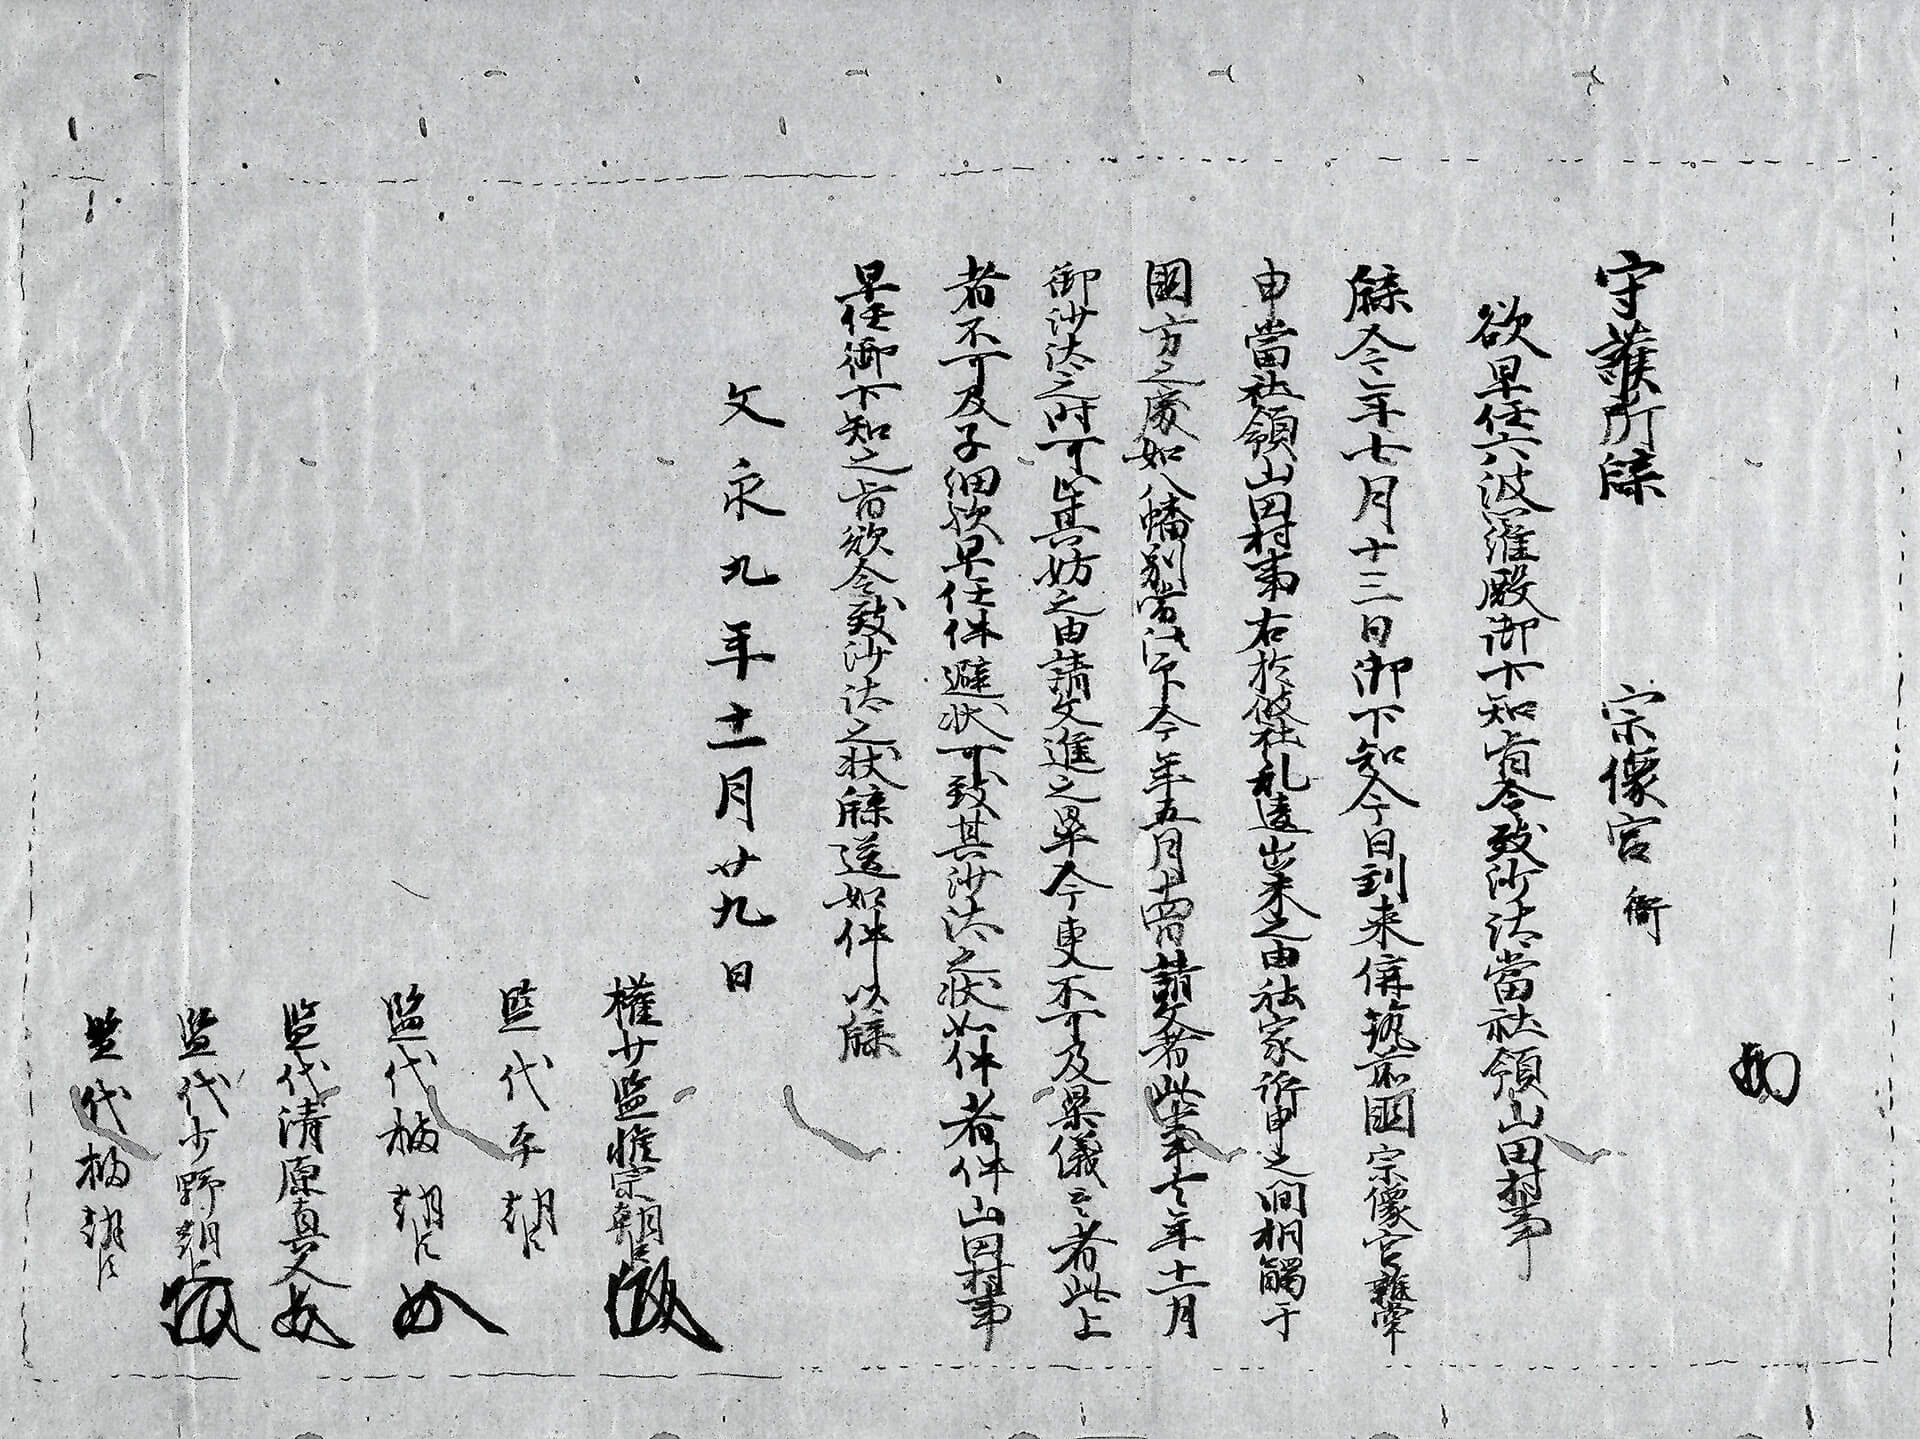 守護所牒　宗像宮衙
欲早任六波羅殿御下知旨令致沙汰當社領山田村事
牒今年七月十三日御下知今日到来偁筑前國宗像宮雜掌
申當社領山田村事右於彼社札遠出来之由社家訴申之間相觸于
國方之處如八幡別當法印今年五月十四日請文者此事去年十一月
御沙汰之時可止其妨之由請文進之畢今更不可及異儀云々者此上
者不可及子細歟早任件避状可致其沙汰之状如件者件山田村事
早任御下知之旨欲令致沙汰之状牒送如件以牒
文永九年十一月廿九日
權少監惟宗朝臣
監代平朝臣
監代橘朝臣
監代清原真人
監代小野朝臣
監代橘朝臣